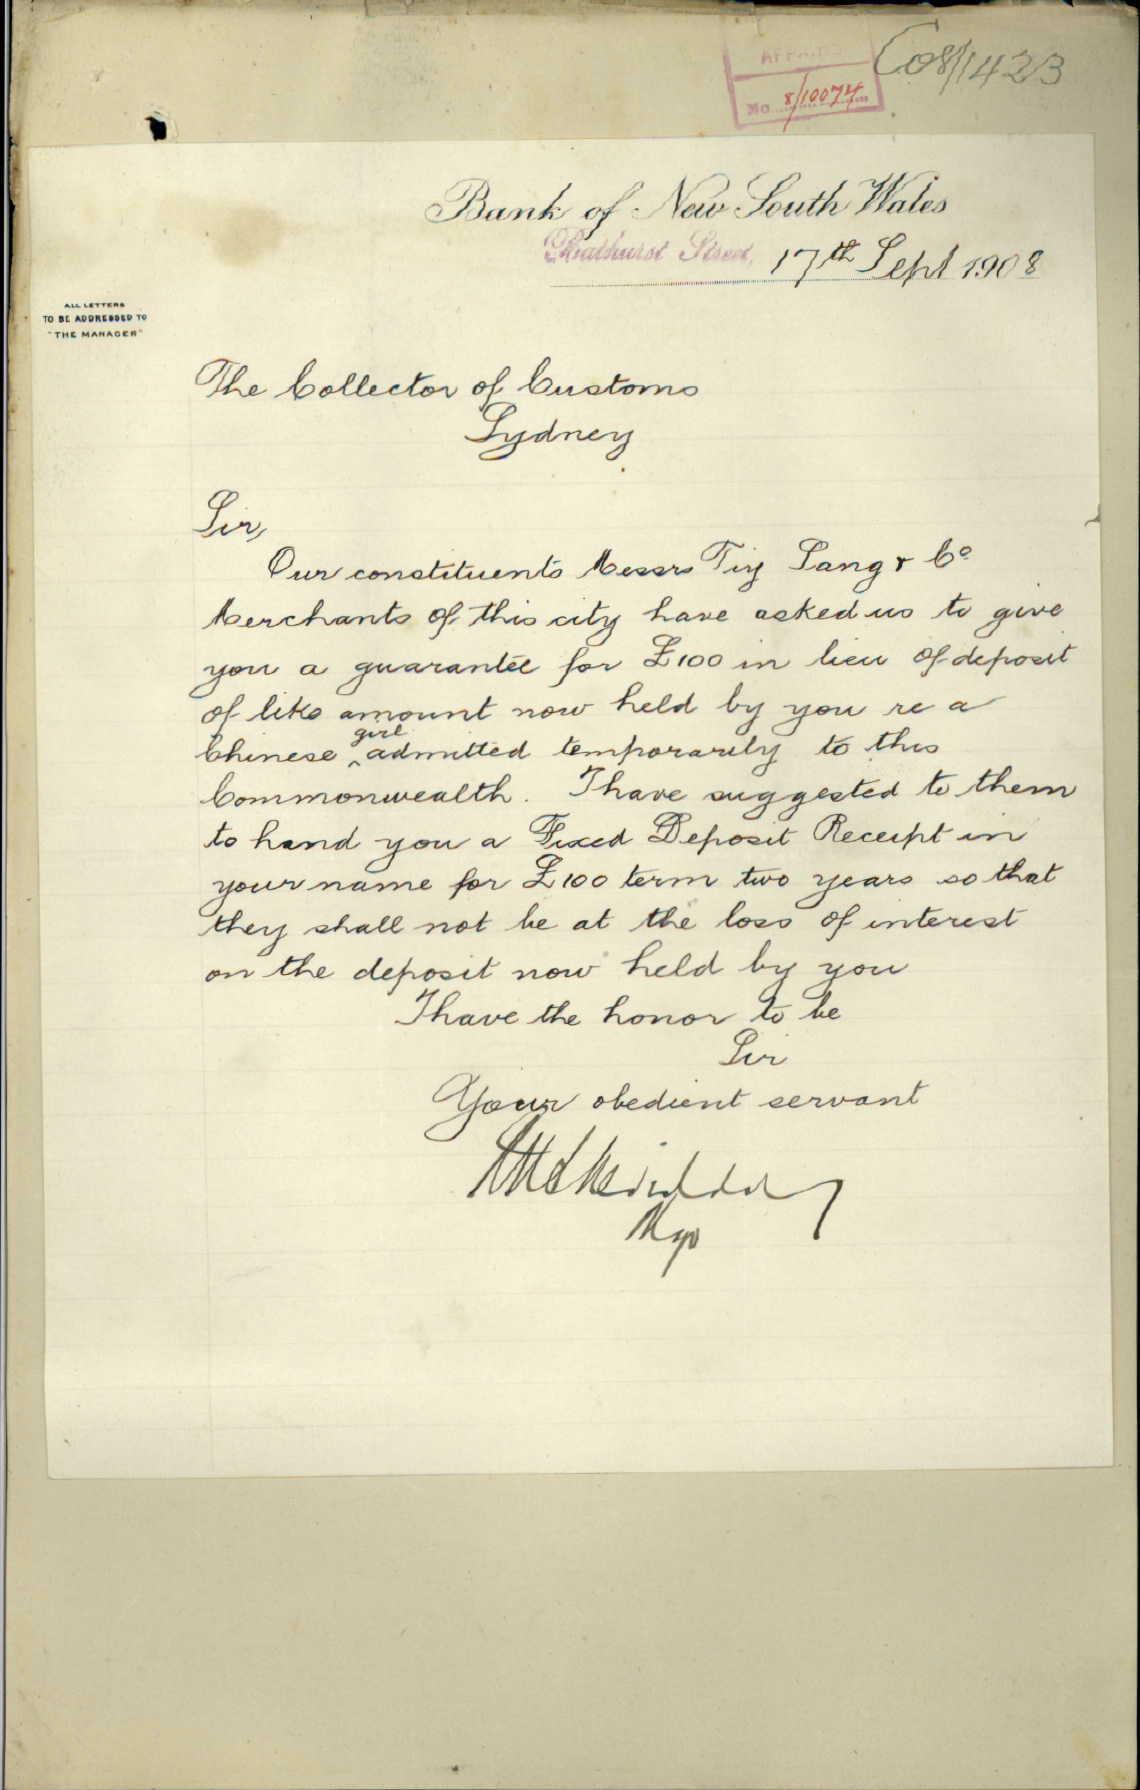 AFFAIRS
No 8/10074
C08/1423
Bank of New South Wales
Bathurst Street, 17th Sept 1908
ALL LETTERS
TO BE ADDRESSED TO
"THE MANAGER"
The Collector of Customs
Sydney
Sir,
Our constituents Messrs Tiy Sang & Co
Merchants of this city have asked us to give
you a guarantee for £100 in lieu of deposit
of like amount now held by you re a
Chinese girl admitted temporarily to this
Commonwealth. I have suggested to them
to hand you a Fixed Deposit Receipt in
your name for £100 term two years so that
they shall not be at the loss of interest
on the deposit now held by you
I have the honor to be
Sir
Your obedient servant
Mgr